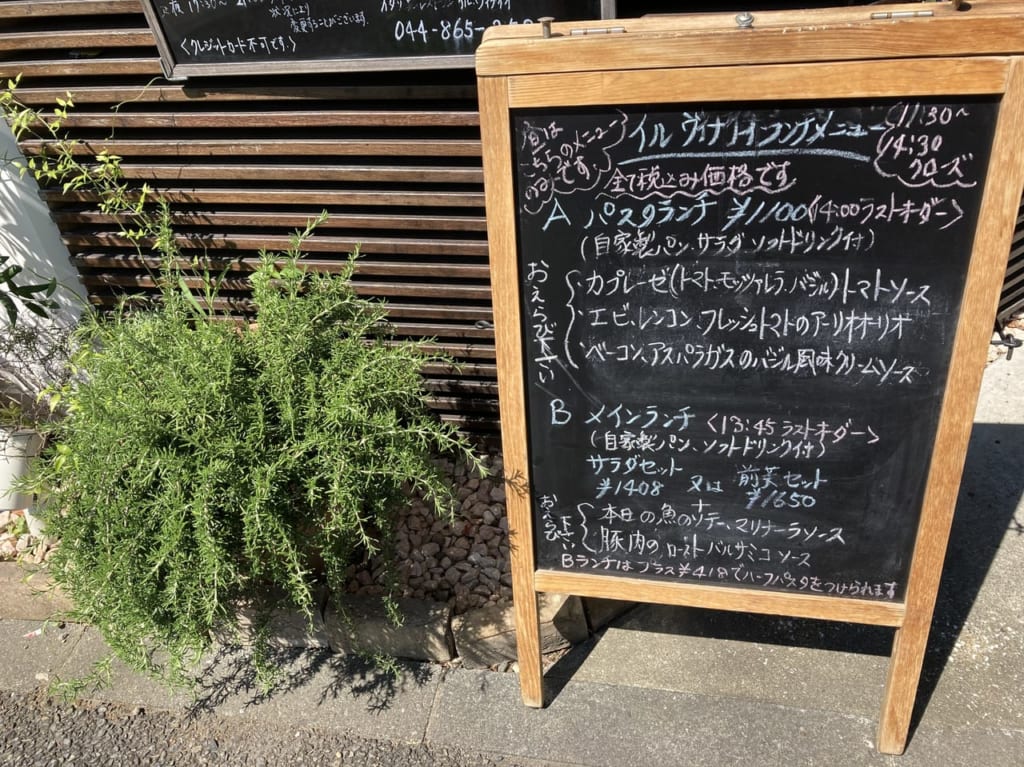 夜 17:30〜2
状況により
変更することがございます.
<クレジットカード不可です.>
イタリアレストラン イル・ヴィナイオ
044-865-
昼は
こちらのメニュー
のみです.
イル ヴィナイオ ランチメニュー
全て税込み価格です
11:30〜
14:30
クローズ
A パスタランチ ¥1100 <14:00 ラストオーダー>
(自家製パン、サラダ、ソフトドリンク付)
おえらび下さい
・カプレーゼ(トマト、モッツァレラ、バジル)トマトソース
・エビ、レンコン、フレッシュトマトのアーリオオーリオ
・ベーコン、アスパラガスのバジル風味クリームソース
B メインランチ <13:45 ラストオーダー>
(自家製パン、ソフトドリンク付)
サラダセット 又は 前菜セット
¥1408 ¥1650
+
おえらび下さい
・本日の魚のソテー、マリナーラソース
・豚肉のローストバルサミコソース
Bランチはプラス¥418でハーフパスタをつけられます